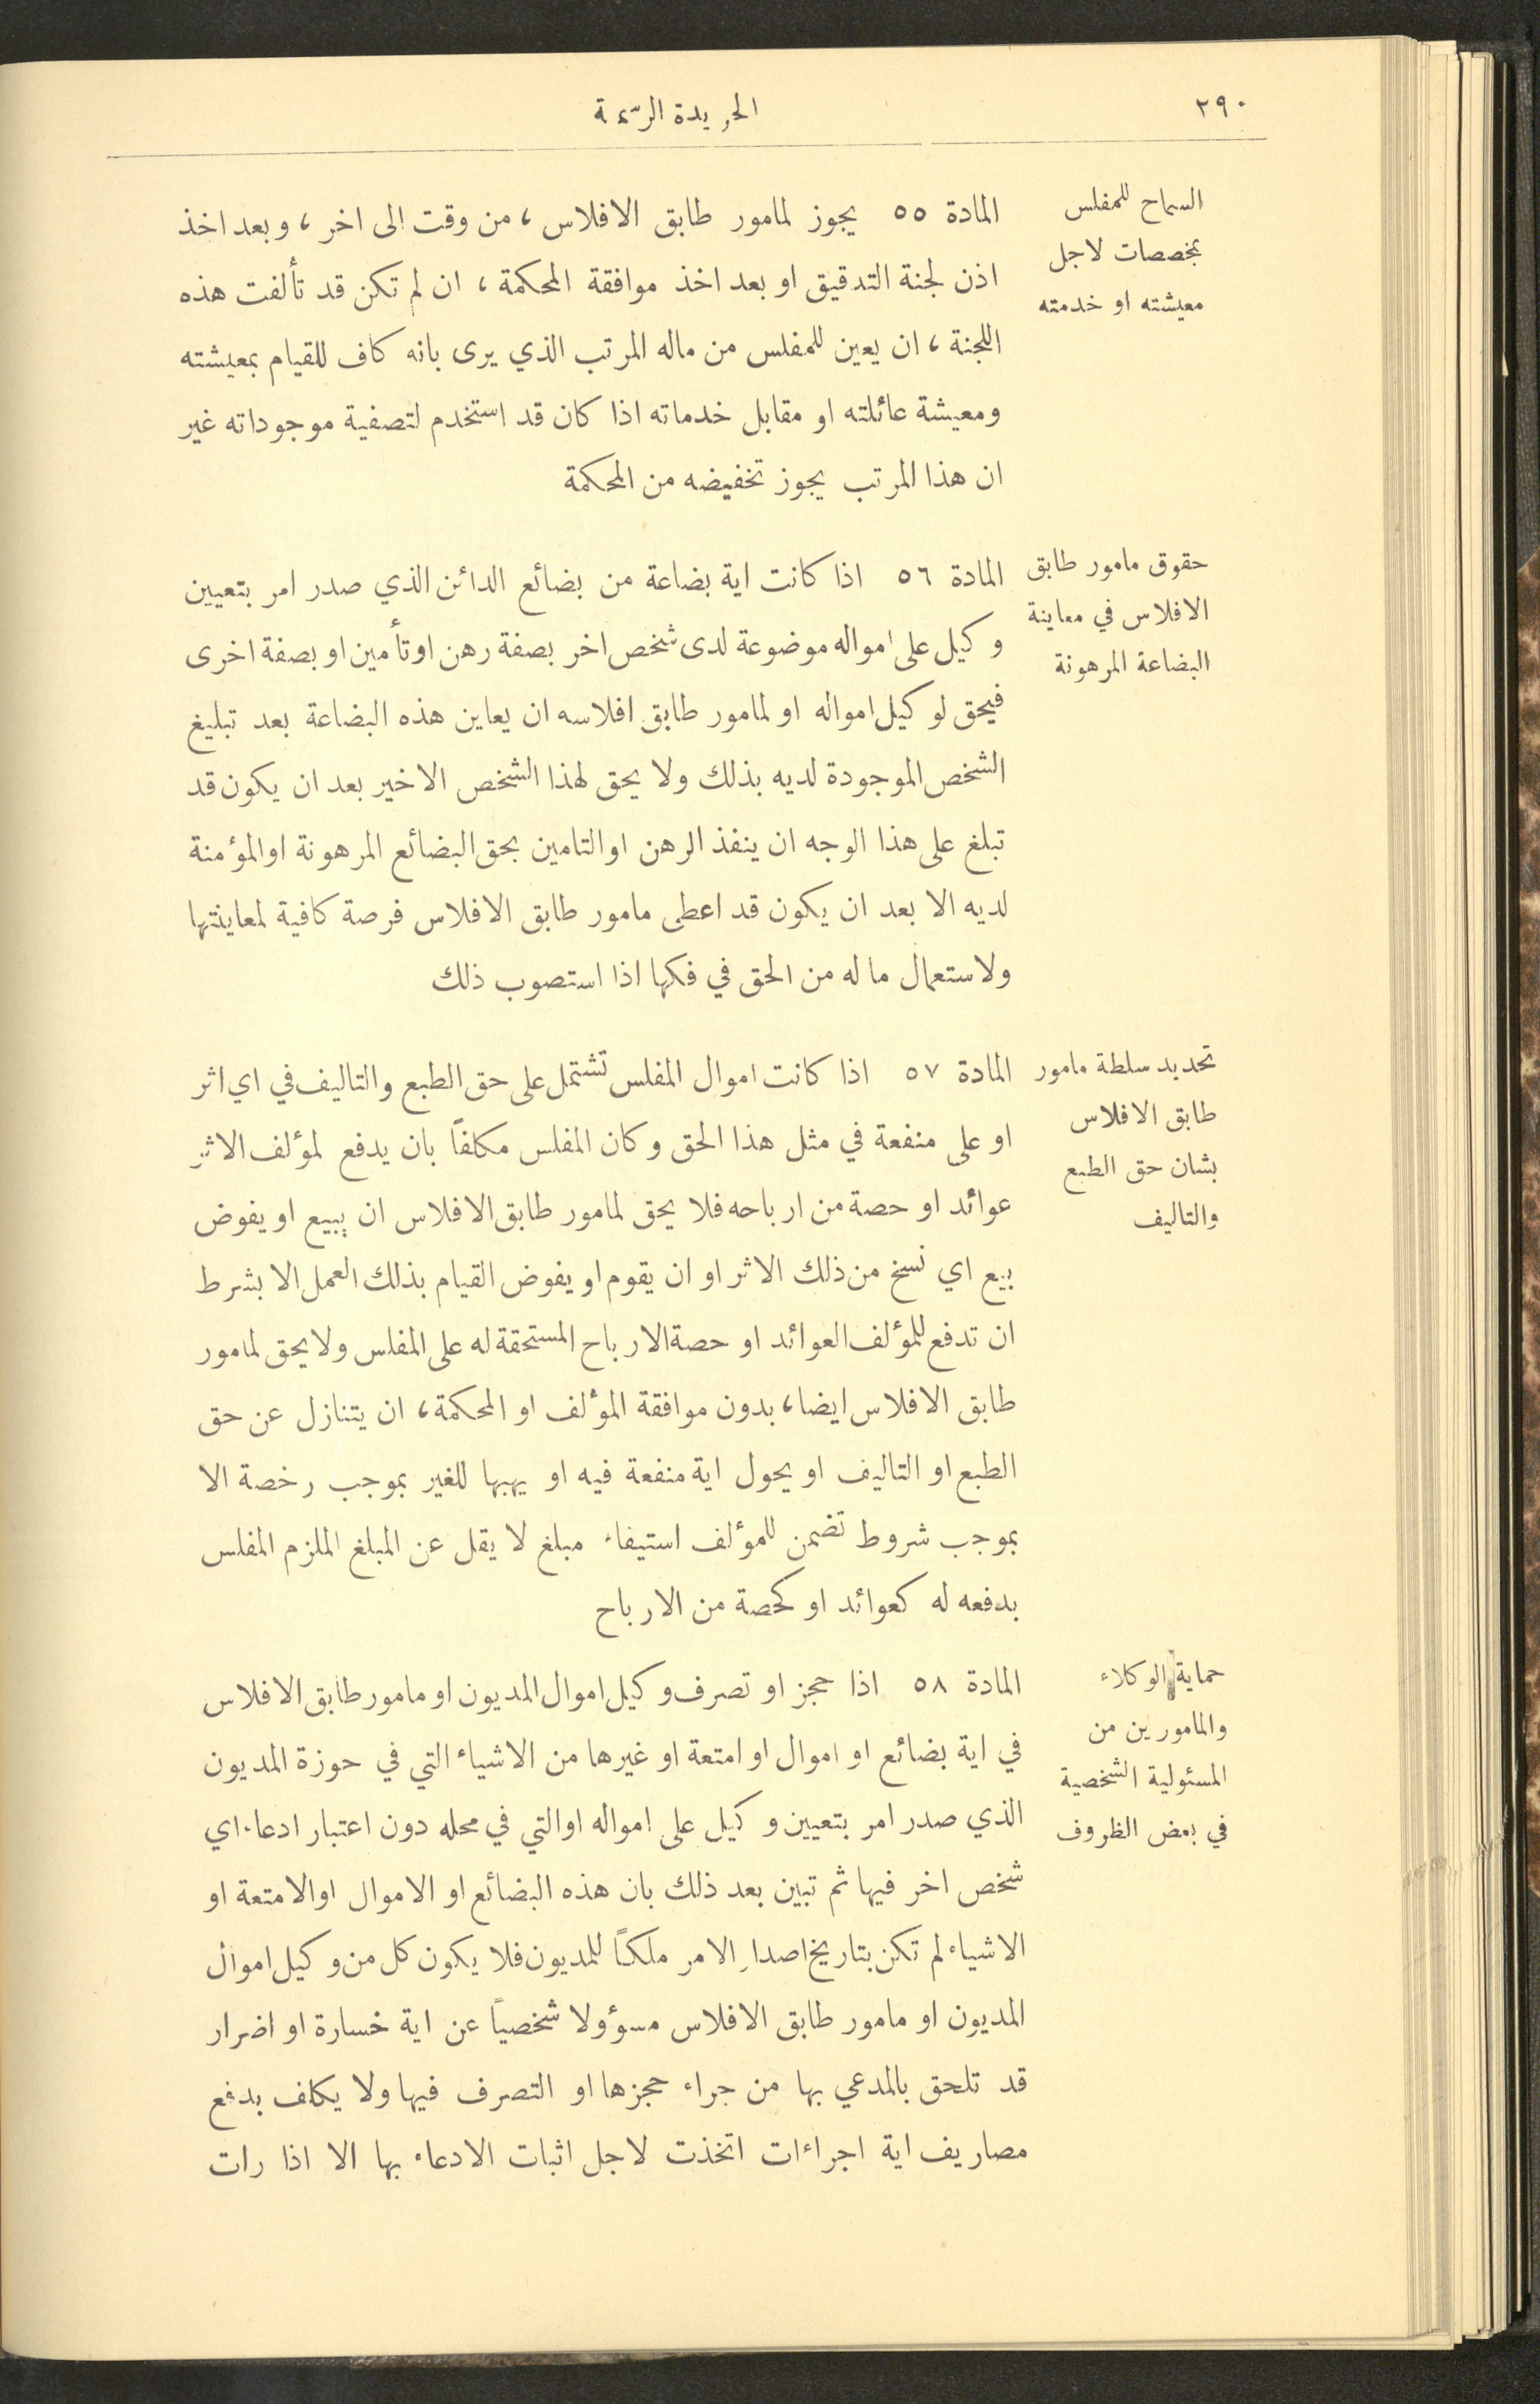 ٢٩٠
الجريدة الرسمية
السماح للمفلس
بمخصصات لاجل
معيشته او خدمته
المادة ٥٥ يجوز لمامور طابق الافلاس، من وقت الى اخر، وبعد اخذ
اذن لجنة التدقيق او بعد اخذ موافقة المحكمة، ان لم تكن قد تألفت هذه
اللجنة، ان يعين للمفلس من ماله المرتب الذي يرى بانه كاف للقيام بمعيشته
ومعيشة عائلته او مقابل خدماته اذا كان قد استخدم لتصفية موجوداته غير
ان هذا المرتب يجوز تخفيضه من المحكمة
حقوق مامور طابق
الافلاس في معاينة
البضاعة المرهونة
المادة ٥٦ اذا كانت اية بضاعة من بضائع الدائن الذي صدر امر بتعيين
وكيل على امواله موضوعة لدى شخص اخر بصفة رهن او تأمين او بصفة اخرى
فيحق لوكيل امواله او لمامور طابق افلاسه ان يعاين هذه البضاعة بعد تبليغ
الشخص الموجودة لديه بذلك ولا يحق لهذا الشخص الاخير بعد ان يكون قد
تبلغ على هذا الوجه ان ينفذ الرهن او التامين بحق البضائع المرهونة او المؤمنة
لديه الا بعد ان يكون قد اعطى مامور طابق الافلاس فرصة كافية لمعاينتها
ولاستعمال ما له من الحق في فكها اذا استصوب ذلك
تحديد سلطة مامور
طابق الافلاس
بشان حق الطبع
والتاليف
المادة ٥٧ اذا كانت اموال المفلس تشتمل على حق الطبع والتاليف في اي اثر
او على منفعة في مثل هذا الحق وكان المفلس مكلفاً بان يدفع لمؤلف الاثر
عوائد او حصة من ارباحه فلا يحق لمامور طابق الافلاس ان يبيع او يفوض
بيع اي نسخ من ذلك الاثر او ان يقوم او يفوض القيام بذلك العمل الا بشرط
ان تدفع للمؤلف العوائد او حصة الارباح المستحقة له على المفلس ولا يحق لمامور
طابق الافلاس ايضا، بدون موافقة المؤلف او المحكمة، ان يتنازل عن حق
الطبع او التاليف او يحول اية منفعة فيه او يهبها للغير بموجب رخصة الا
بموجب شروط تضمن للمؤلف استيفاء مبلغ لا يقل عن المبلغ الملزم المفلس
بدفعه له كعوائد او كحصة من الارباح
حماية الوكلاء
والمامورين من
المسئولية الشخصية
في بعض الظروف
المادة ٥٨ اذا حجز او تصرف وكيل اموال المديون او مامور طابق الافلاس
في اية بضائع او اموال او امتعة او غيرها من الاشياء التي في حوزة المديون
الذي صدر امر بتعيين وكيل على امواله او التي في محله دون اعتبار ادعاء اي
شخص اخر فيها ثم تبين بعد ذلك بان هذه البضائع او الاموال او الامتعة او
الاشياء لم تكن بتاريخ اصدار الامر ملكاً للمديون فلا يكون كل من وكيل اموال
المديون او مامور طابق الافلاس مسؤولا شخصياً عن اية خسارة او اضرار
قد تلحق بالمدعي بها من جراء حجزها او التصرف فيها ولا يكلف بدفع
مصاريف اية اجراءات اتخذت لاجل اثبات الادعاء بها الا اذا رات